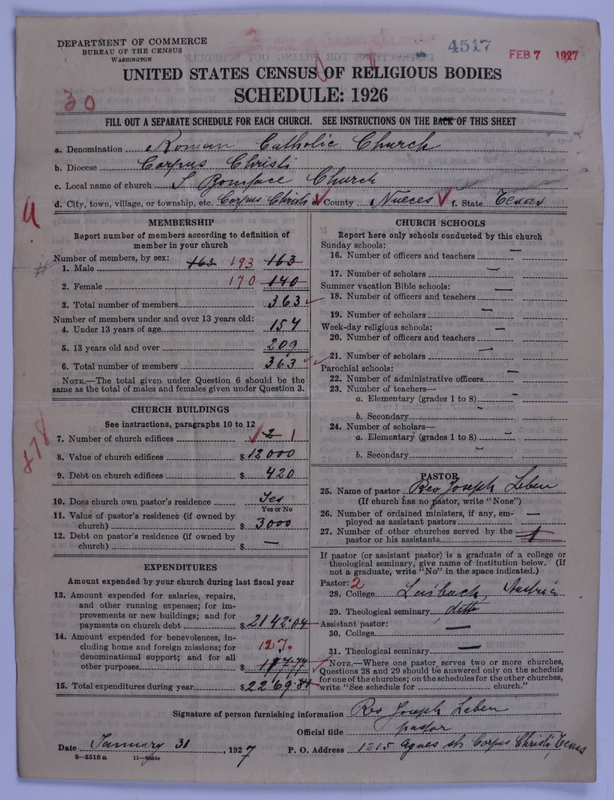 DEPARTMENT OF COMMERCE
BUREAU OF THE CENSUS
WASHINGTON
4517
FEB 7 1927
UNITED STATES CENSUS OF RELIGIOUS BODIES
SCHEDULE: 1926
30
FILL OUT A SEPARATE SCHEDULE FOR EACH CHURCH. SEE INSTRUCTIONS ON THE BACK OF THIS SHEET
a. Denomination Roman Catholic Church
b. Diocese Corpus Christi
c. Local name of church S Boniface Church
d. City, town, village, or township, etc. Corpus Christi County Nueces f. State Texas
MEMBERSHIP
Report number of members according to definition of
member in your church
Number of members, by sex:
1. Male 163 193 163
2. Female 170 140
3. Total number of members 363
Number of members under and over 13 years old:
4. Under 13 years of age 154
5. 13 years old and over 209
6. Total number of members 363
NOTE.—The total given under Question 6 should be the
same as the total of males and females given under Question 3.
CHURCH BUILDINGS
See instructions, paragraphs 10 to 12
7. Number of church edifices 2 1
8. Value of church edifices $ 12000
9. Debt on church edifices $ 420
10. Does church own pastor's residence Yes
Yes or No
11. Value of pastor's residence (if owned by
church) $ 3000
12. Debt on pastor's residence (if owned by
church) $ —
EXPENDITURES
Amount expended by your church during last fiscal year
13. Amount expended for salaries, repairs,
and other running expenses; for im-
provements or new buildings; and for
payments on church debt $ 2142.04
14. Amount expended for benevolences, in-
cluding home and foreign missions; for
denominational support; and for all
other purposes $ 127.
15. Total expenditures during year $ 2269.
CHURCH SCHOOLS
Report here only schools conducted by this church
Sunday schools:
16. Number of officers and teachers —
17. Number of scholars —
Summer vacation Bible schools: —
18. Number of officers and teachers
19. Number of scholars —
Week-day religious schools: —
20. Number of officers and teachers
21. Number of scholars —
Parochial schools: —
22. Number of administrative officers
23. Number of teachers—
a. Elementary (grades 1 to 8) -
b. Secondary -
24. Number of scholars—
a. Elementary (grades 1 to 8) -
b. Secondary -
PASTOR
25. Name of pastor Rev Joseph Leben
(If church has no pastor, write "None")
26. Number of ordained ministers, if any, em-
ployed as assistant pastors —
27. Number of other churches served by the
pastor or his assistants 1
If pastor (or assistant pastor) is a graduate of a college or
theological seminary, give name of institution below. (If
not a graduate, write "No" in the space indicated.)
Pastor: 2
28. College Laibach, Austria
29. Theological seminary ditto
Assistant pastor:
30. College —
31. Theological seminary —
NOTE.—Where one pastor serves two or more churches,
Questions 28 and 29 should be answered only on the schedule
for one of the churches; on the schedules for the other churches,
write "See schedule for church."
Signature of person furnishing information Rev Joseph Leben
Official title pastor
Date January 31, 1927 P. O. Address 1215 Agnes str Corpus Christi, Texas